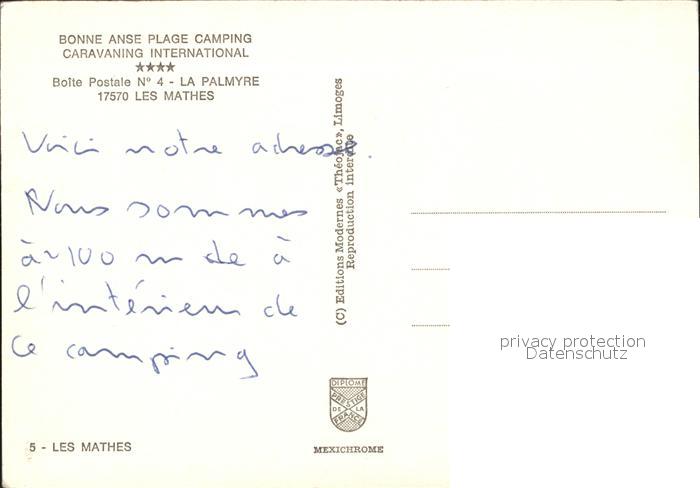 BONNE ANSE PLAGE CAMPING
CARAVANING INTERNATIONAL
★★★★
Boîte Postale N° 4 - LA PALMYRE
17570 LES MATHES
Voici notre adresse.
Nous sommes
à 100 m de à
l'intérieur de
ce camping
5 - LES MATHES
(C) Editions Modernes «Théojac», Limoges
Reproduction interdite
DIPLOME
PRESTIGE
DE LA
FRANCE
MEXICHROME
privacy protection
Datenschutz